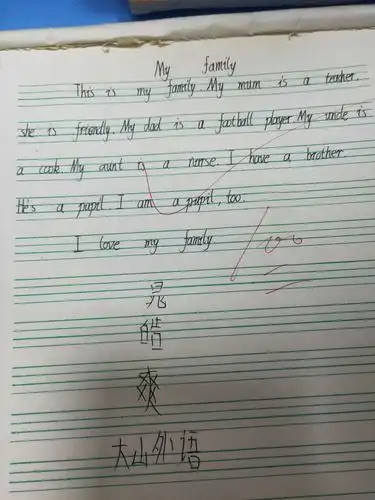 My family
This is my family. My mum is a teacher.
she is friendly. My dad is a football player. My uncle is
a cook. My aunt is a nurse. I have a brother.
He's a pupil. I am a pupil, too.
I love my family.
晧
爽
大山外语